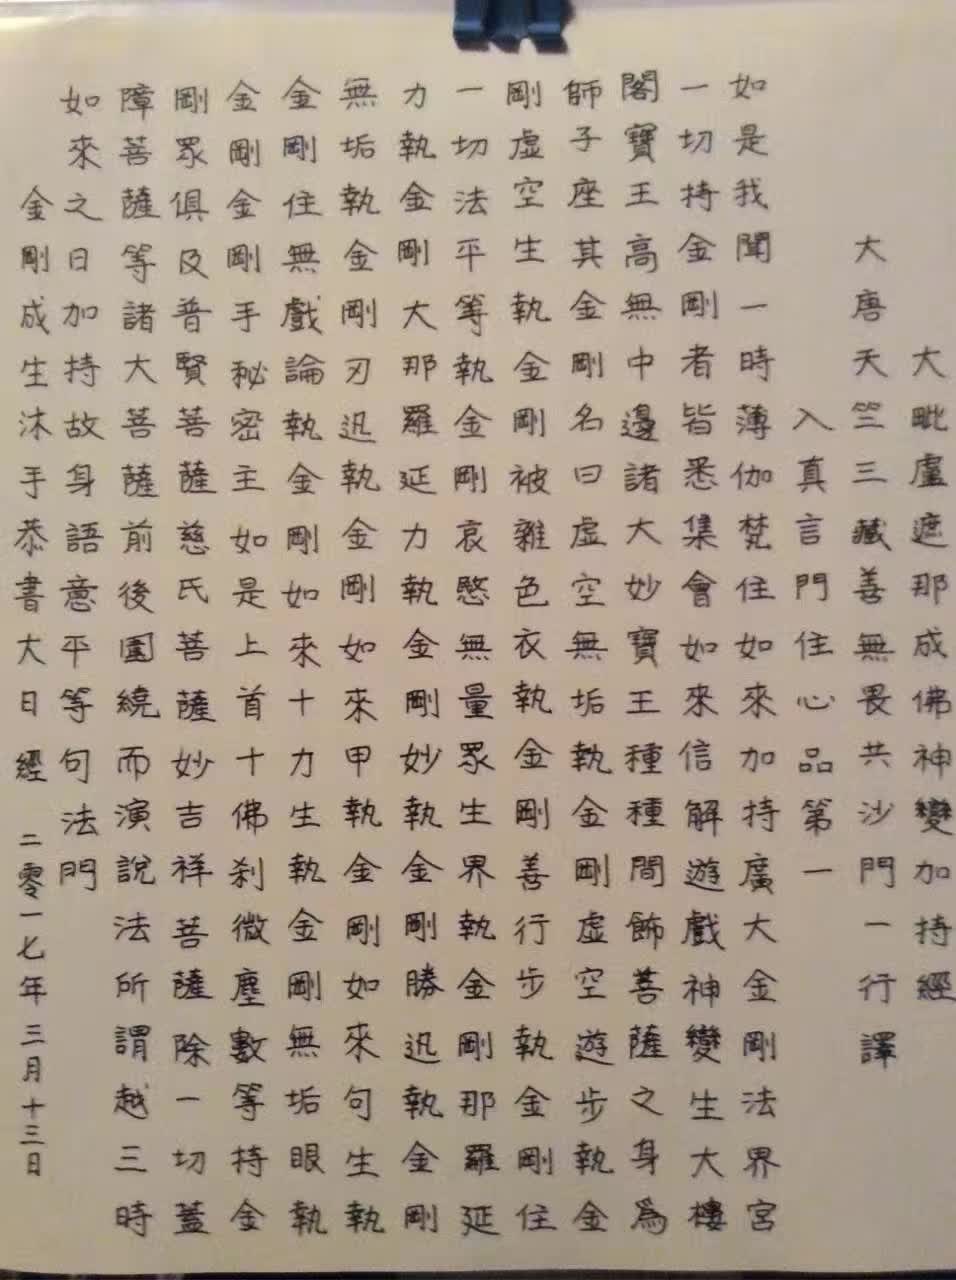 大毗盧遮那成佛神變加持經
大唐天竺三藏善無畏共沙門一行譯
入真言門住心品第一
如是我聞一時薄伽梵住如來加持廣大金剛法界宮
一切持金剛者皆悉集會如來信解遊戲神變生大樓
閣寶王高無中邊諸大妙寶王種種間飾菩薩之身為
師子座其金剛名曰虛空無垢執金剛虛空遊步執金
剛虛空生執金剛被雜色衣執金剛善行步執金剛住
一切法平等執金剛哀愍無量眾生界執金剛那羅延
力執金剛大那羅延力執金剛妙執金剛勝迅執金剛
無垢執金剛刃迅執金剛如來甲執金剛如來句生執
金剛住無戲論執金剛如來十力生執金剛無垢眼執
金剛金剛手秘密主如是上首十佛剎微塵數等持金
剛眾俱及普賢菩薩慈氏菩薩妙吉祥菩薩除一切蓋
障菩薩等諸大菩薩前後圍繞而演說法所謂越三時
如來之日加持故身語意平等句法門
金剛成生沐手恭書大日經 二零一七年三月十三日